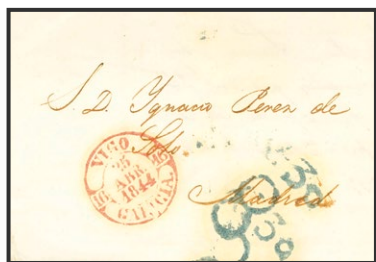 S. D. Ygnacio Perez de
Soto
Madrid
VIGO
25
ABR
1844
GALICIA.